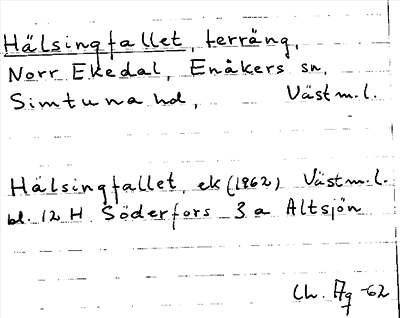 Hälsingfallet, terräng,
Norr Ekedal, Enåkers sn,
Simtuna hd, Västm.l.
Hälsingfallet, ek (1962) Västm.l.
bl. 12 H Söderfors 3 a Altsjön
Ch. Ag -62